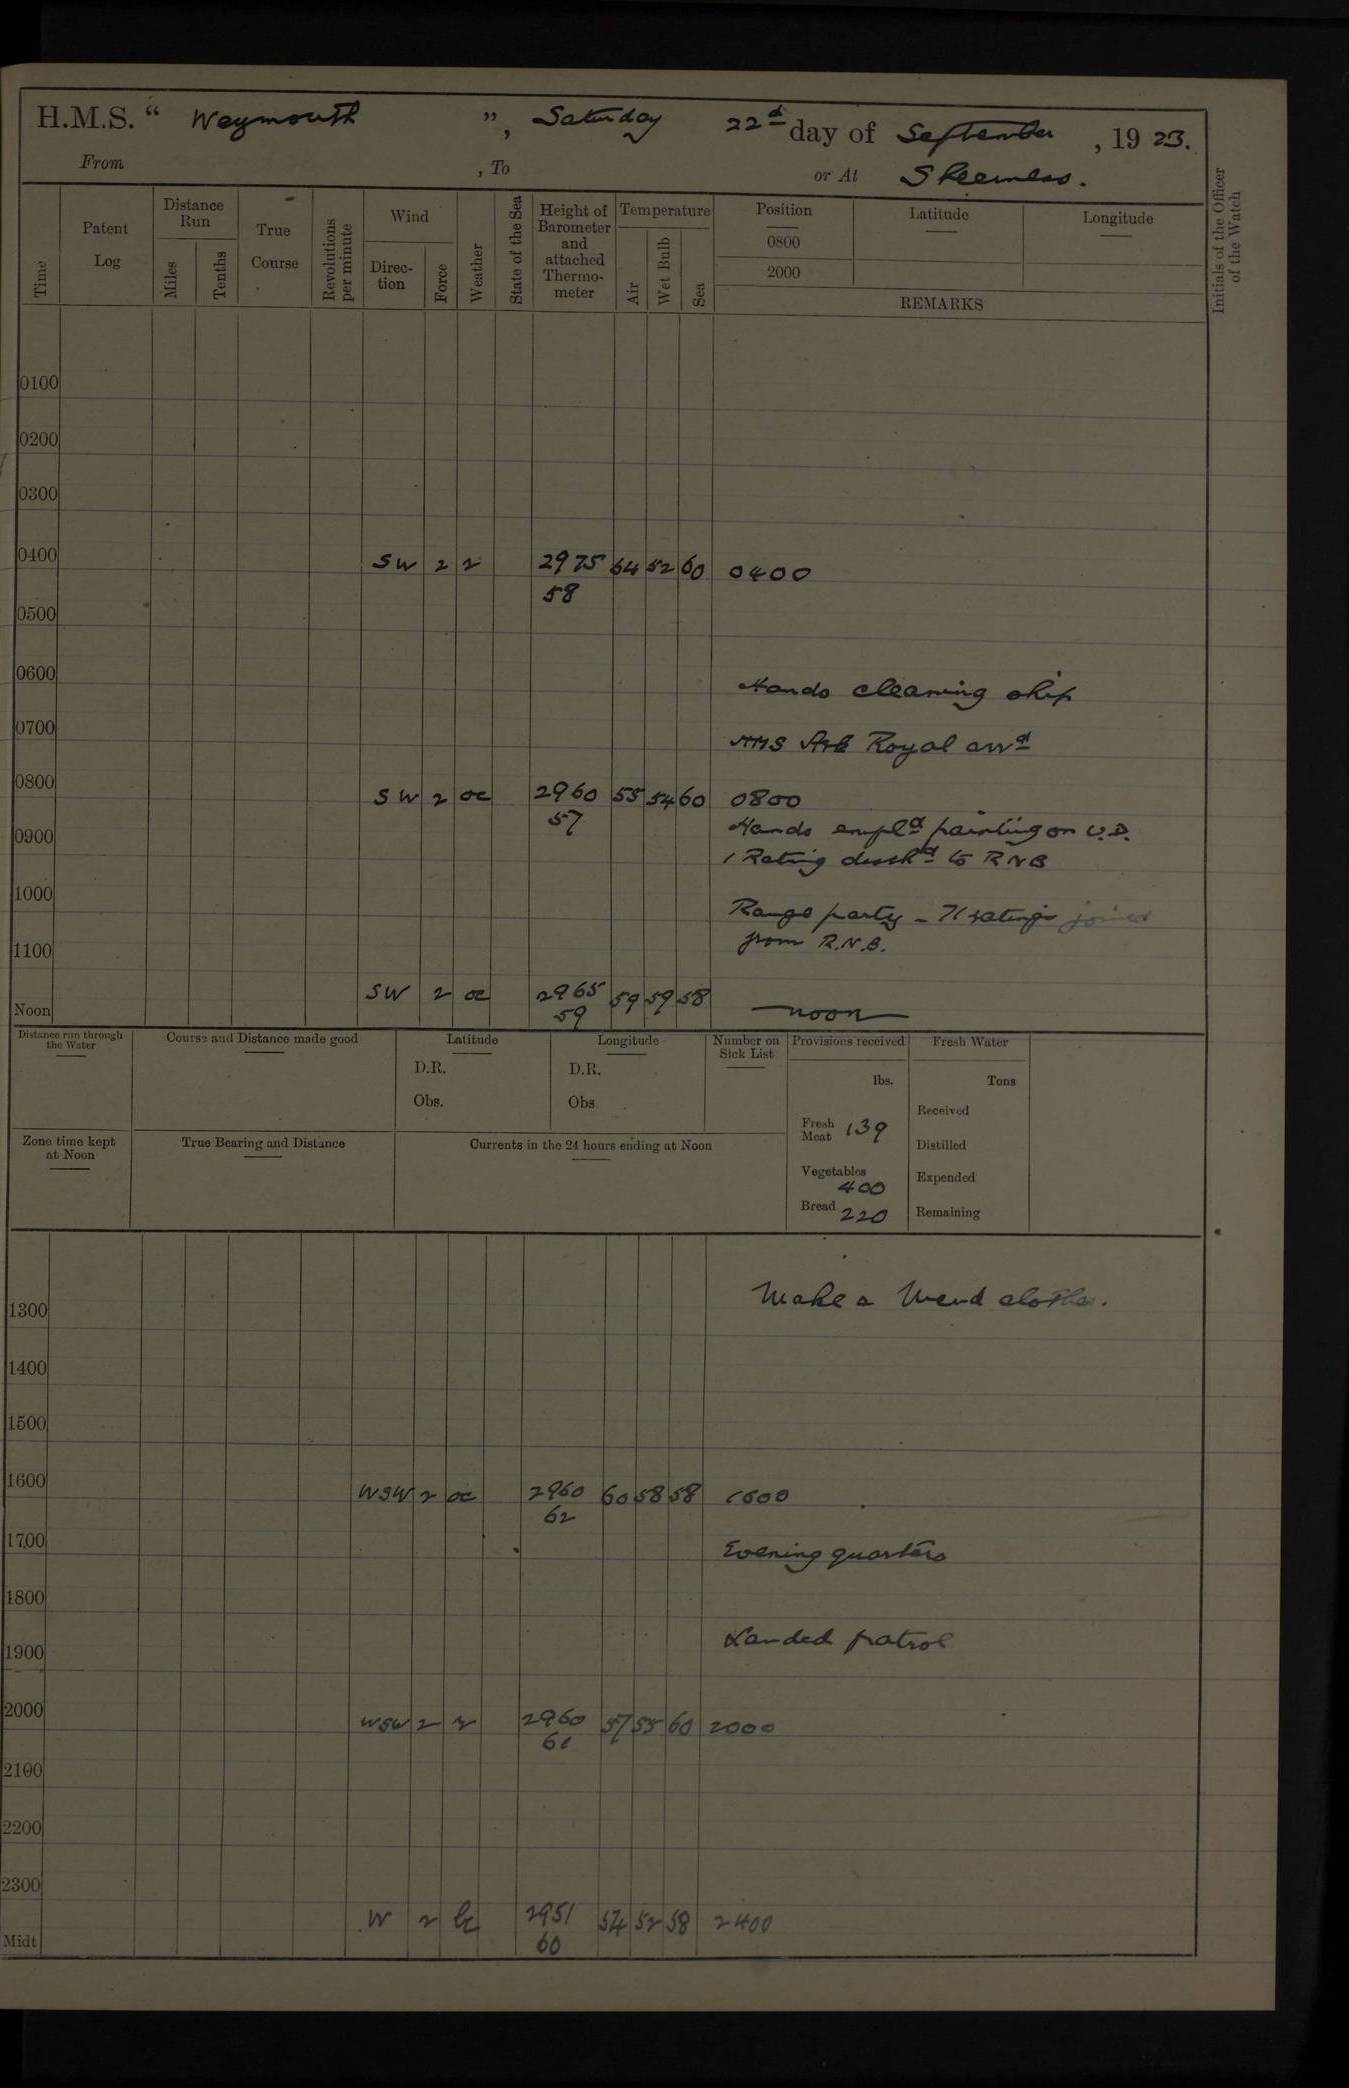 H.M.S. “ Weymouth ”, Saturday 22d day of September, 1923.
From , To or At Sheerness.
Time
Patent Log
Distance Run
Miles
Tenths
True Course
Revolutions per minute
Wind
Direc-tion
Force
Weather
State of the Sea
Height of Barometer and attached Thermo-meter
Temperature
Air
Wet Bulb
Sea
Position
0800
2000
Latitude
Longitude
REMARKS
Initials of the Officer of the Watch
0100
0200
0300
0400 SW 2 r 2975 54 52 60 0400
58
0500
0600
Hands cleaning ship
0700
HMS Ark Royal arrd
0800 SW 2 oc 2960 55 54 60 0800
57
0900 Hands empld painting on U.D.
1 Rating dischd to RNB
1000
Range party - 71 ratings joined
from R.N.B.
1100
Noon SW 2 oc 2965 59 59 58 noon
59
Distance run through the Water
Course and Distance made good
Latitude
D.R.
Obs.
Longitude
D.R.
Obs
Number on Sick List
Provisions received
lbs.
Fresh Meat 139
Vegetables 400
Bread 220
Fresh Water
Tons
Received
Distilled
Expended
Remaining
Zone time kept at Noon
True Bearing and Distance
Currents in the 24 hours ending at Noon
Make & Mend clothes.
1300
1400
1500
1600 WSW 2 oc 2960 60 58 58 1600
62
1700
Evening quarters
1800
1900 Landed patrol
2000 WSW 2 r 2960 57 55 60 2000
61
2100
2200
2300
Midt W 2 bc 2951 54 52 58 2400
60